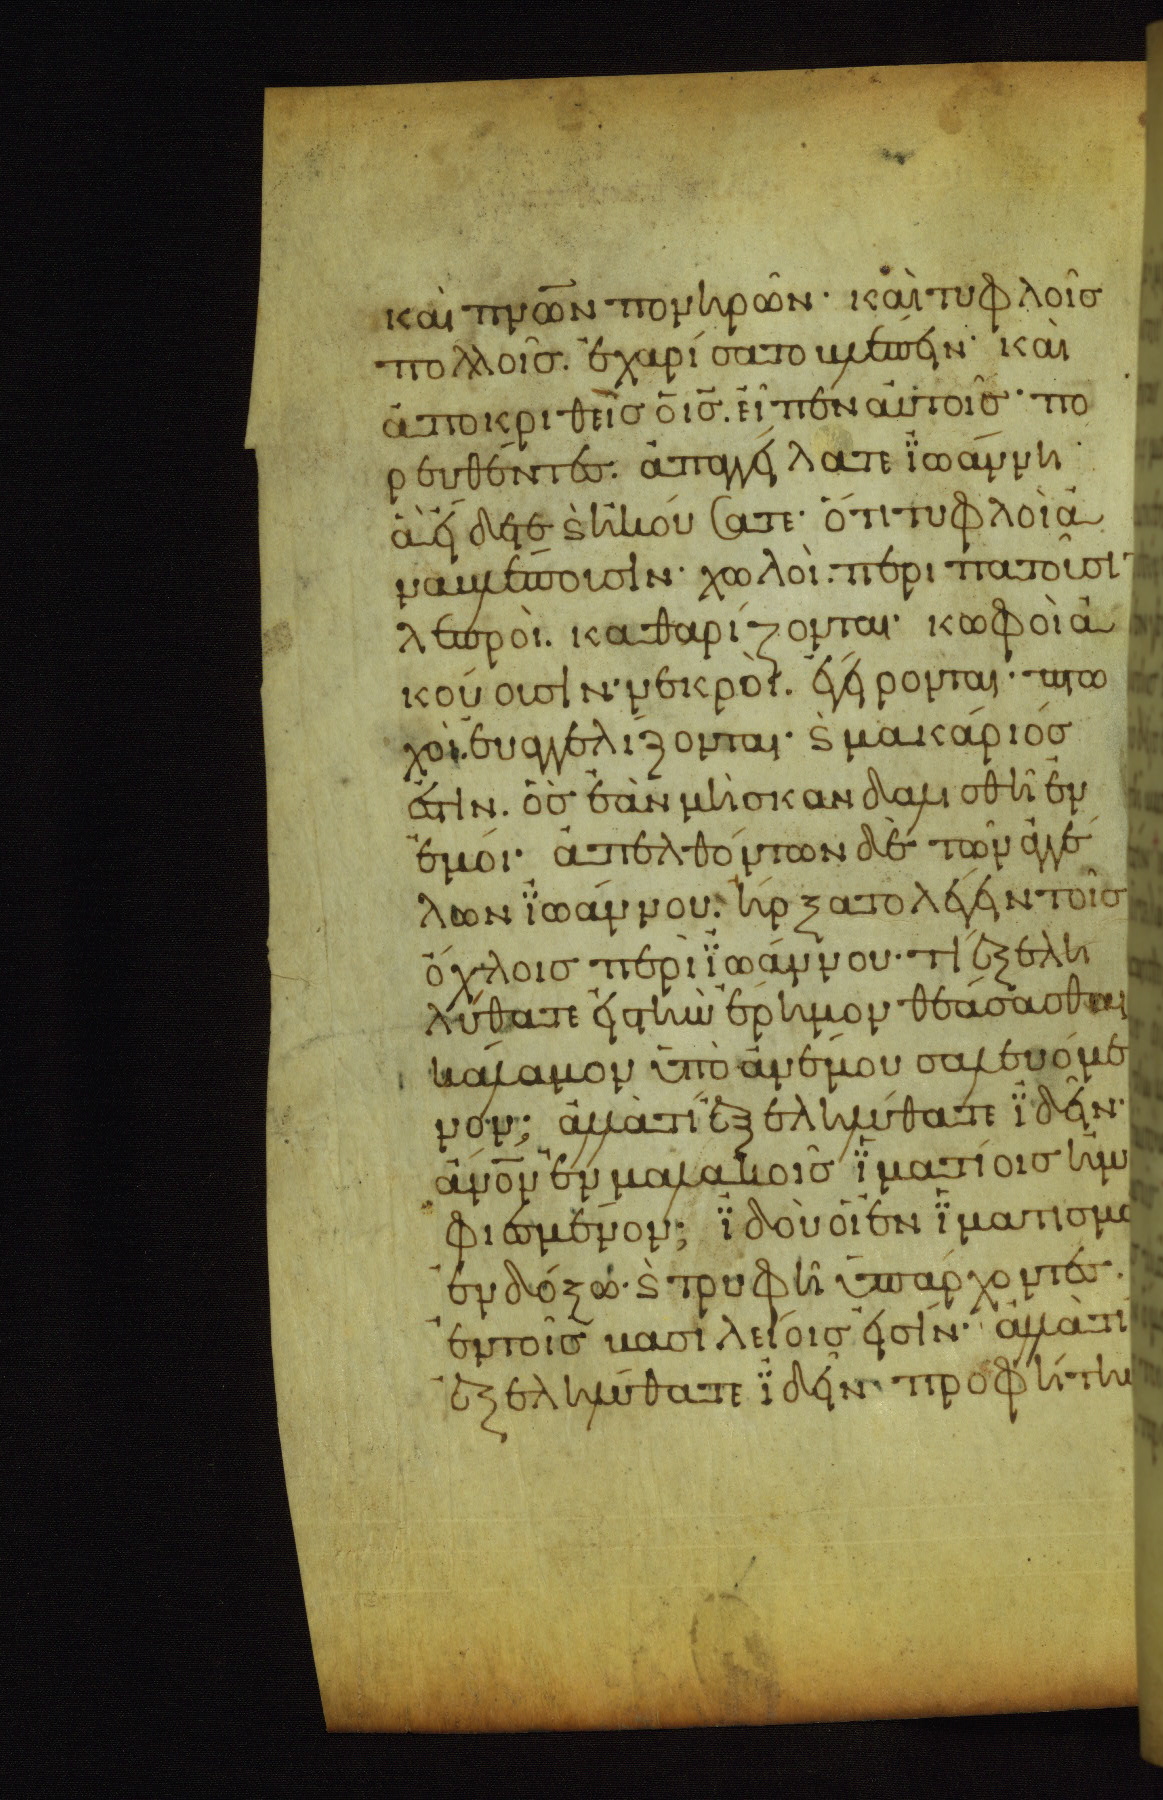 καὶ πνω̅ν πονηρῶν· καὶ τυφλοῖς
πολλοῖς. ἐχαρίσατο βλέπειν· καὶ
ἀποκριθεὶς ὁ ι̅ς̅. εἶπεν αὐτοῖς· πο
ρευθέντες. ἀπαγγείλατε ϊωάννη
ἃ εἴδετε κ̀ ἠκούσατε· ὅτι τυφλοὶ ἀ
ναβλέπουσιν· χωλοὶ. περιπατοῦσι
λεπροὶ. καθαρίζονται· κωφοὶ ἀ
κούουσιν· νεκροὶ. ἐγείρονται· πτω
χοὶ. εὐαγγελίζονται· κ̀ μακάριός
ἐστιν. ὃς ἐὰν μὴ σκανδαλισθῆ ἐν
ἐμοί· ἀπελθόντων δὲ τῶν ἀγγέ
λων ϊωάννου. ἤρξατο λέγειν τοῖς
ὄχλοις περὶ ϊωάννου· τί ἐξελη
λύθατε εἰς τὴν ἔρημον θεάσασθαι
κάλαμον ὑπὸ ἀνέμου σαλευόμε
νον; ἀλλὰ τί ἐξεληλύθατε ϊδεῖν·
ἄνο̅ν ἐν μαλακοῖς ϊματίοις ἠμ
φιεσμένον; ϊδοὺ οἱ ἐν ϊματισμῶ
ἐνδόξω· κ̀ τρυφῆ ὑπάρχοντες.
ἐν τοῖς βασιλείοις εἰσίν· ἀλλὰ τί
ἐξεληλύθατε ϊδεῖν· προφήτην